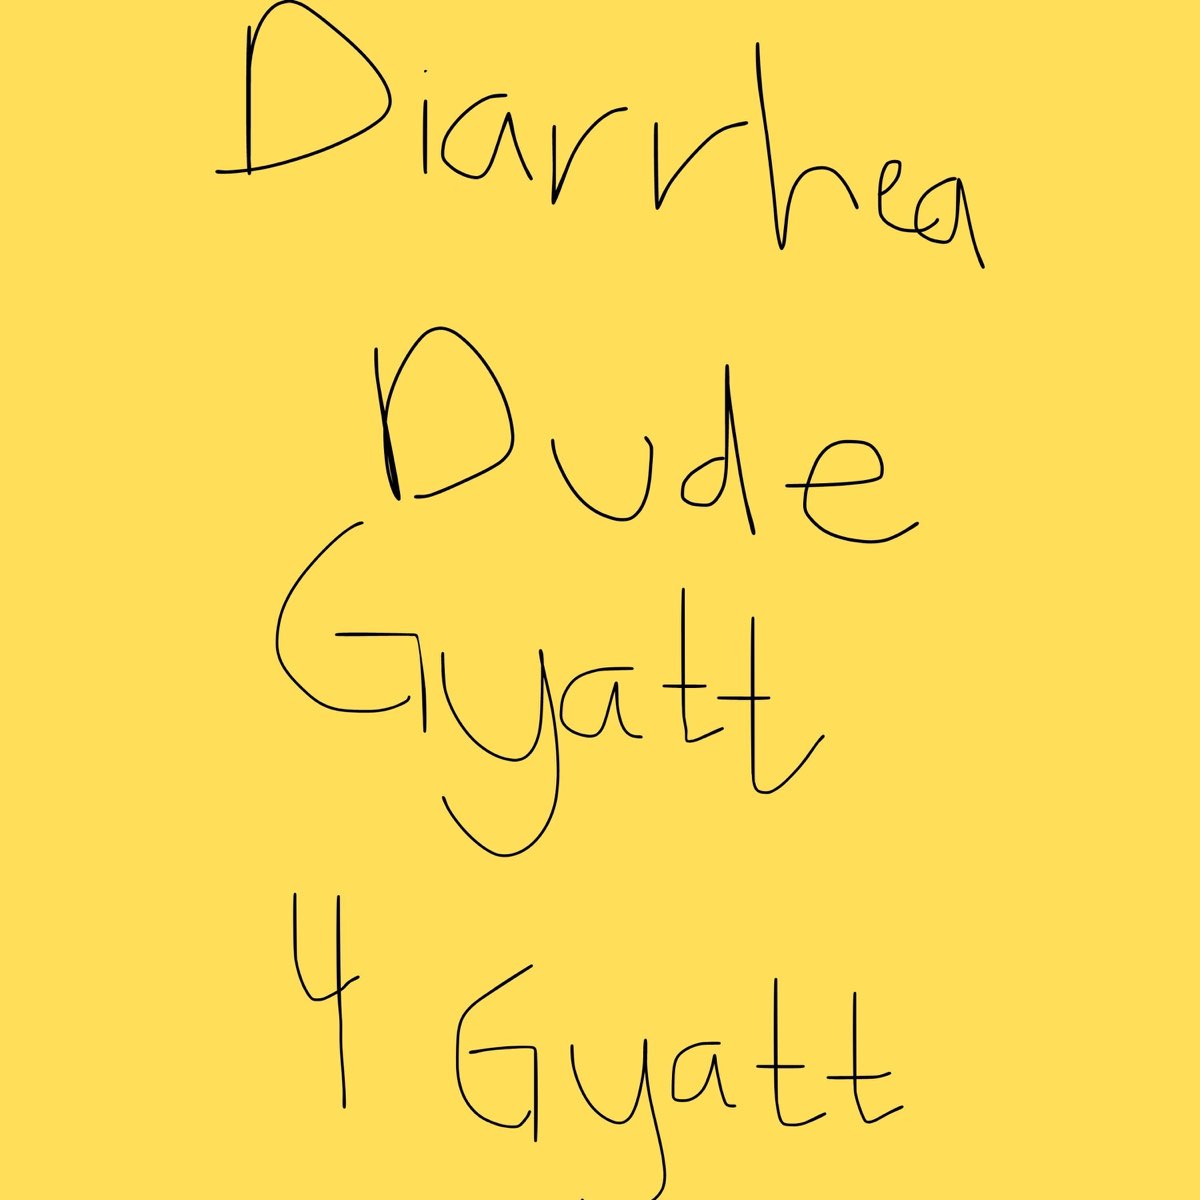 Diarrhea
Dude
Gyatt
4 Gyatt